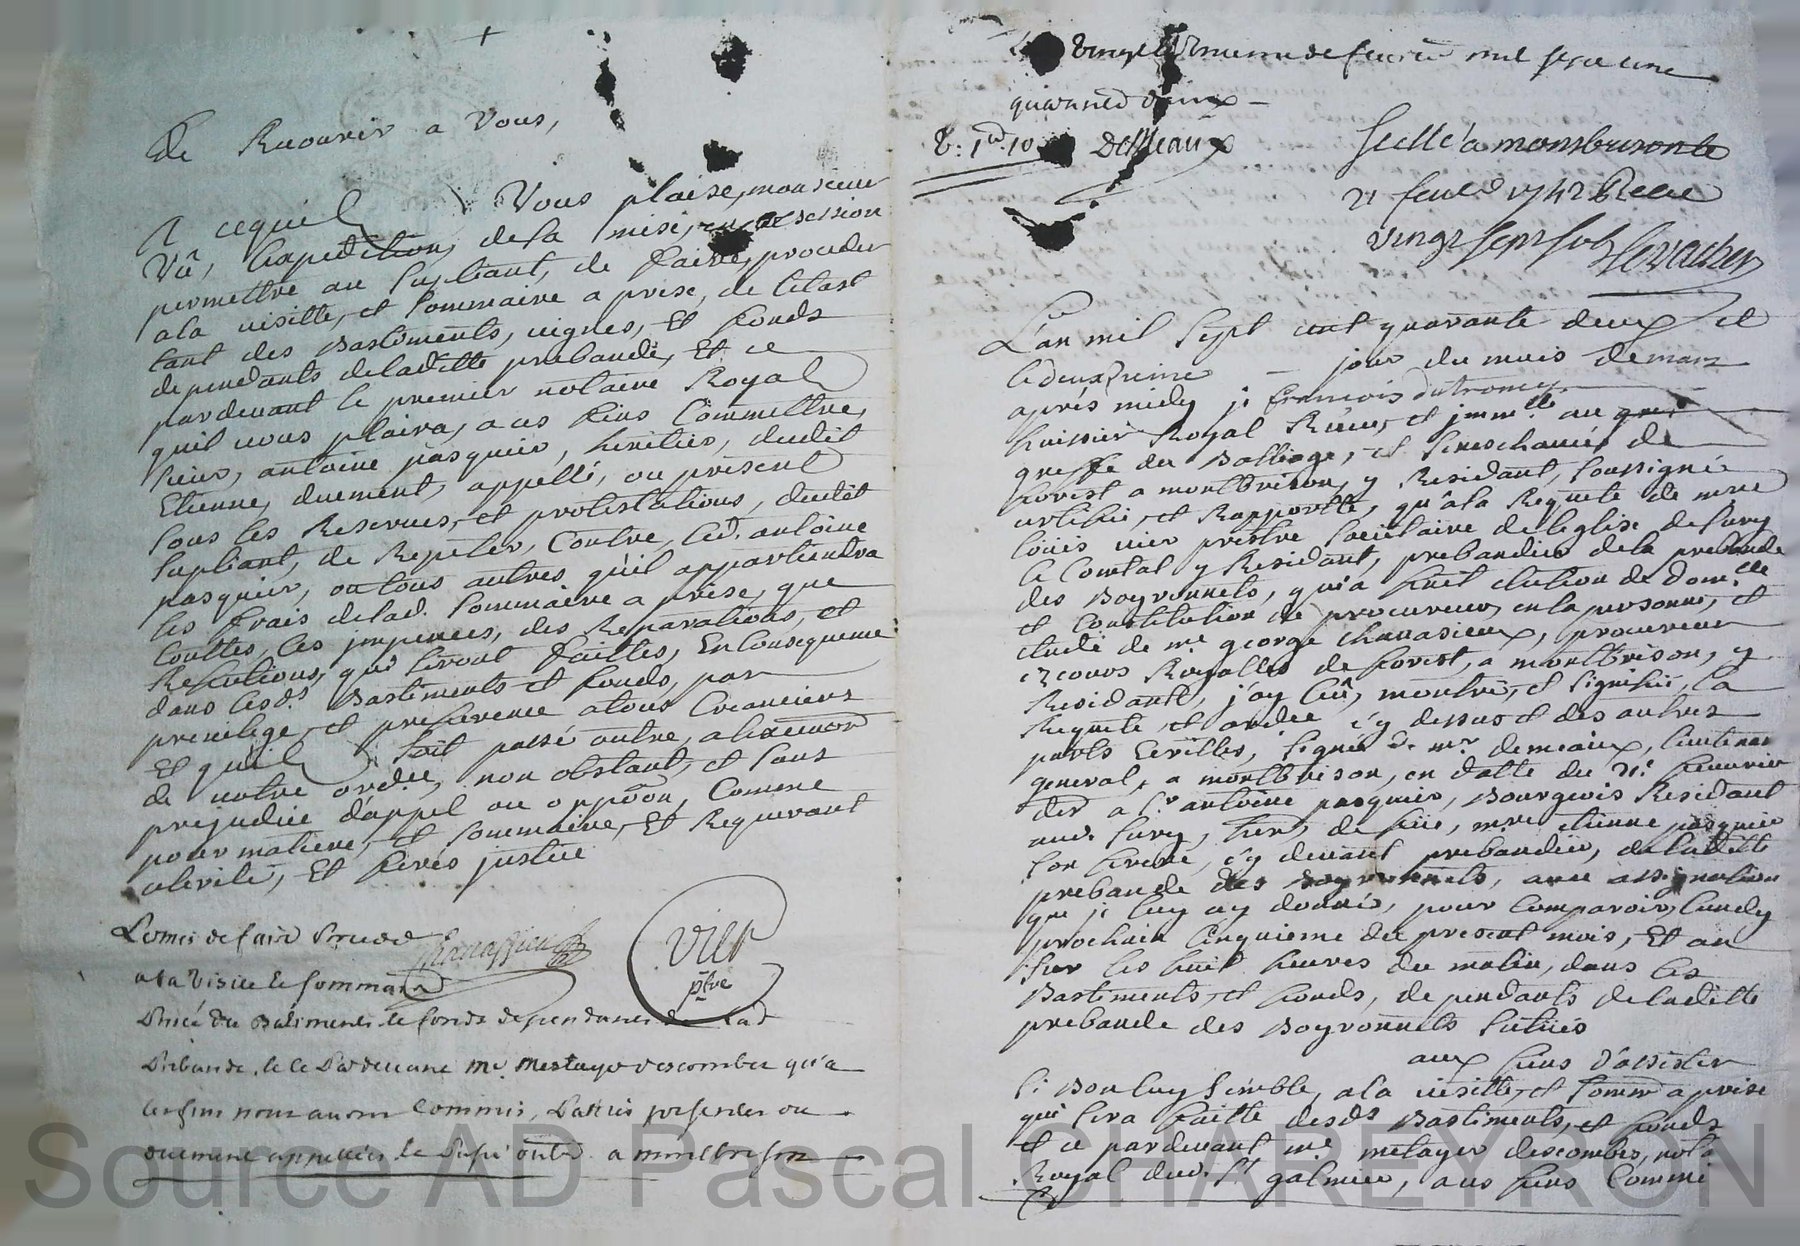 de Recourir a Vous,
A cequil Vous plaise, monsieur
Vû, lexpedition, de la mise, en possession
permettre au supliant, de faire, proceder
ala visitte, et sommaire a prise, de lestat
tant des Bastiments, vignes, et fonds
dependants de ladette prebande, Et ce
pardevant le premier notaire Royal
quil vous plaira, a ces fins Commettre,
sieur, antoine pasquier, heritier, dudit
Etienne, duement, appellé, ou present
sous les Reserves, et protestations, dudit
supliant, de Repeter, Contre, led. antoine
pasquier, ou tous autres quil appartiendra
les frais de lad. sommaire a prise, que
Coutter, les impenses, des Reparations, et
Refections, qui seront faittes, En Consequence
dans lesds. Bastiments et fonds, par
privilege, et preference atous Creanciers
Et quil soit passé outre, a
de votre ordce, non obstant, et sans
prejudice d'appel ou oppoõn, Comme
pour matiere, et sommaire, Et Requerant
celerité, Et ferés justice
Permis de faire proceder Chanassieux
a la visitte et sommaire
VIER
ptre
prisée des Batiments et fonds dependants de lad
prebande, et ce pardevant Me. Mestayer descombes qu'a
cés fins nous avons Commis, parties presentes ou
duement appellées a montbrison
Le vingt et unieme de fevrier mil sept cent
quarante deux
DeMeaux
Scellé a montbrison le
21 fevrier 1742 Receu
vingt sept sols
L'an mil sept cent quarante deux et
le deuxzieme jour du mois de mars
aprés midy je francois dutroncy
huissier Royal Receu, et jmmlé au
greffe du Balliage, et seneschaucée de
forest a montbrison, y Residant, soussigné
certiffie, et Rapporte, qu'à la Requete de mre
louis vier prestre societaire de leglise de sury
le Comtal y Residant, prebandier de la prebande
des Boyronnets, qui a fait election de domlle
et Constitution de procureur, en la personne, et
etude de me. george Chanasieux, procureur
ez cours Royalles de forest, a montbrison, y
Residant, j'ay leû, montré, et signiffié, la
Requete, et ordce cy dessus et des autres
parts Ecrittes, signée de mr. demeaux, lieutenant
general, a montbrison, en datte du 21e. fevrier
der a sr. antoine pasquier, Bourgeois Residant
aud. sury, herr, de feu, mre etienne pasquier
son frere, cy devant prebandier, de ladette
prebande des Boyronnets, avec assignation
que je luy ay donnée, pour Comparoir, lundy
prochain cinquieme du present mois, Et an
sur les huit heures du matin, dans les
Bastiments, et fonds, dependants de ladette
prebande des Boyronnets situés
aux fins d'assister
si Bon luy semble, a la visitte, et sommre aprise
qui sera faitte desds Bastiments, et fonds
et ce pardevant me. metayer descombes, notre
Royal dud. st galmier, a ces fins Commi
Source AD Pascal CHAREYRON